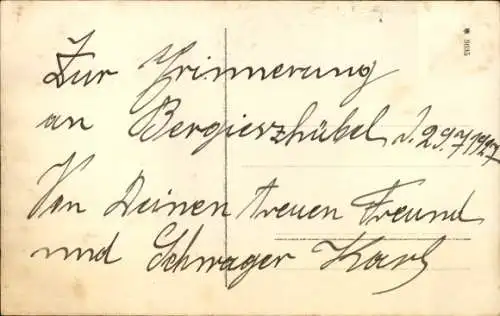 Zur Erinnerung
an Bergieszhübel d. 29.7.1927
Von Deinen treuen Freund
und Schwager Karl
5035